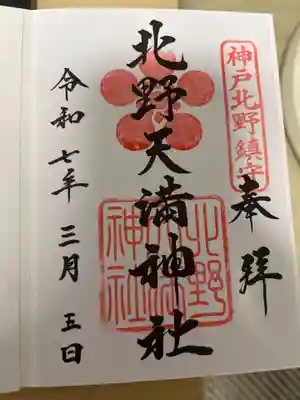 神戸北野鎮守
奉拝
北野天満神社
北野
神社
令和七年三月五日